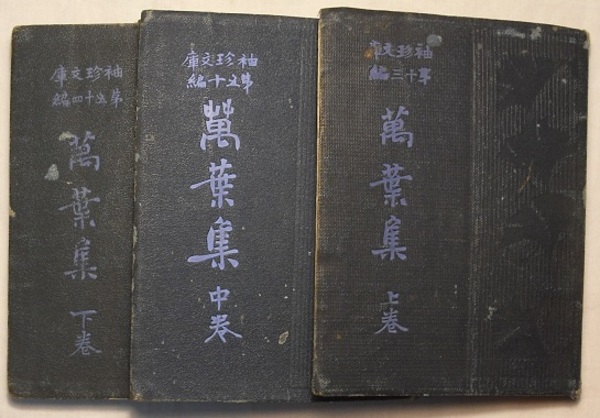 袖珍文庫
第十三編
萬葉集
上卷
袖珍文庫
第五十編
萬葉集
中卷
袖珍文庫
第五十四編
萬葉集
下卷